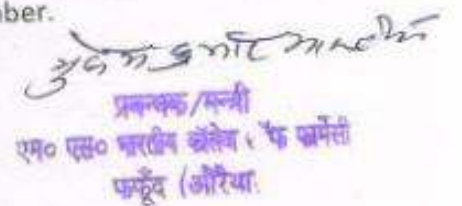 ber.
प्रबन्धक/मन्त्री
एम० एस० भारतीय कॉलेज ऑफ फार्मेसी
फफूँद (औरैया)